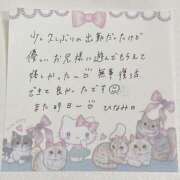 少し久しぶりの出勤だったけど
優しいお兄様に遊んでもらえて
嬉しかったー♡ 無事復活
できて良かったです☺
また明日ー♡ ひなみ